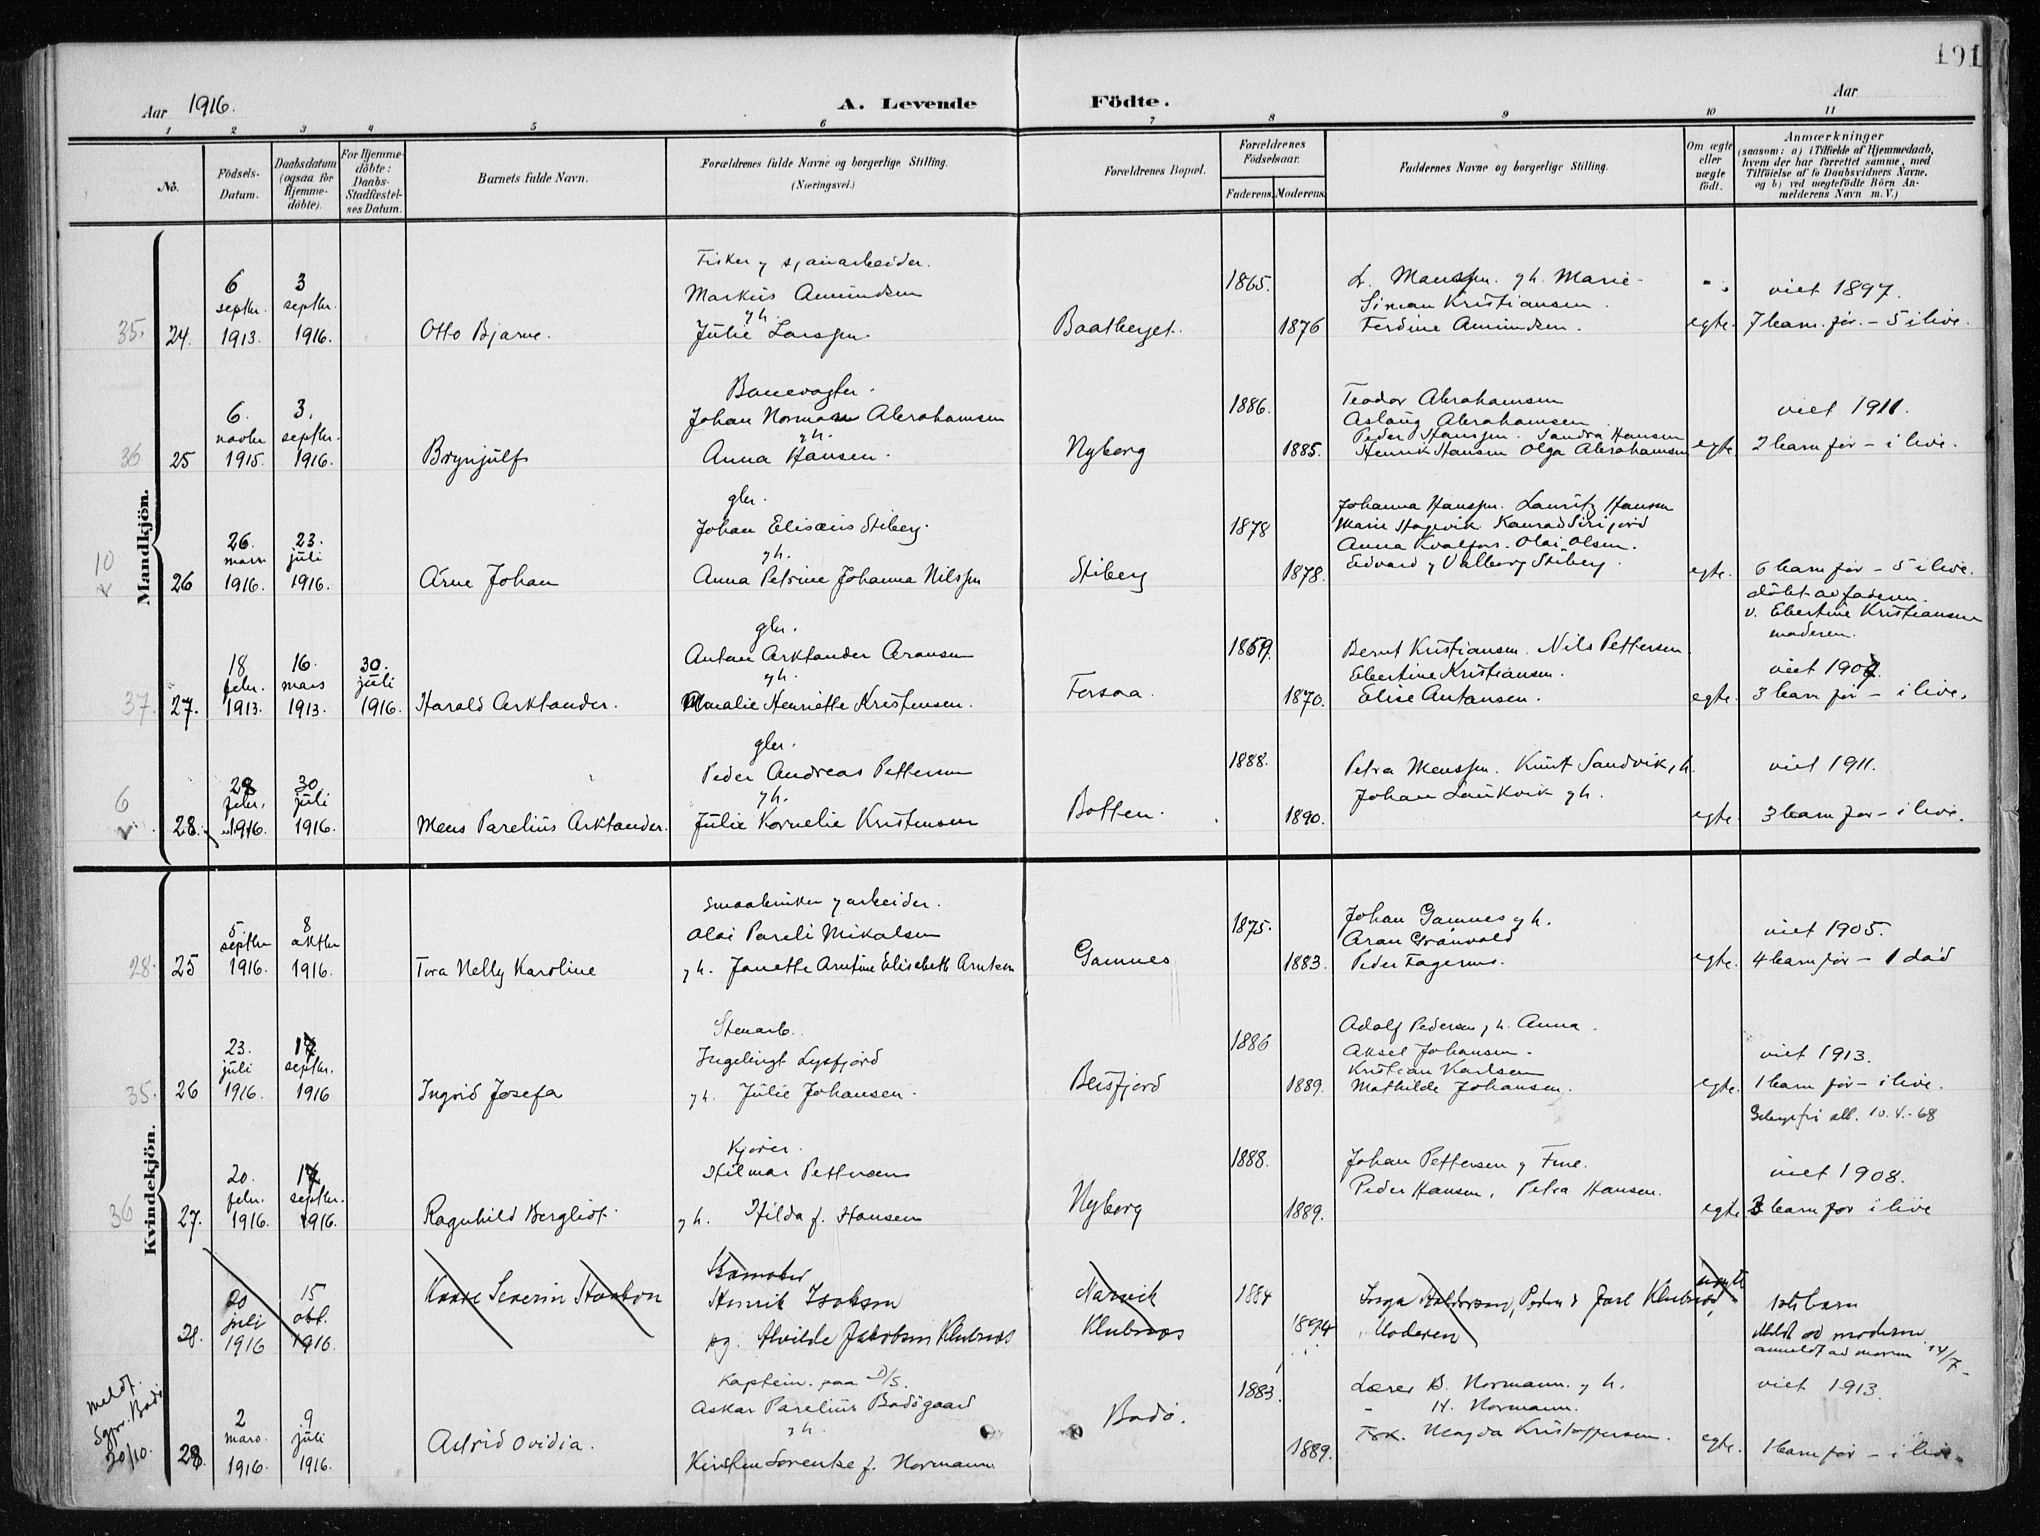 191
Aar 1916.
A. Levende Födte.
Aar
1 2 3 4 5 6 7 8 9 10 11
No.
Födsels-Datum.
Daabsdatum (ogsaa for Hjemme-döbte).
For Hjemme-döbte: Daabs-Stadfæstel-ses Datum.
Barnets fulde Navn.
Forældrenes fulde Navne og borgerlige Stilling.
(Næringsvei.)
Forældrenes Bopæl.
Forældrenes Födselsaar.
Faderens. Moderens.
Faddernes Navne og borgerlige Stilling.
Om ægte eller uægte födt.
Anmærkninger
(saasom: a) i Tilfælde af Hjemmedaab, hvem der har forrettet samme, med Tilföielse af to Daabsvidners Navne, og b) ved uægtefödte Börn An-melderens Navn m. V.)
Mandkjön.
35. 24.
6 septbr. 1913.
3 septbr. 1916.
Otto Bjarne.
Fisker og
Markus Amundsen
g h.
Julie Larssen.
Baatberget.
1865.
1876
gh. Marie
Simon Kristiansen.
Ferdine Amundsen.
egte.
viet 1897.
7 barn før. - 5 i live.
36 25
6. novbr 1915.
3. septbr. 1916.
Brynjulf
Banevogter.
Johan Norman Abrahamsen
g h.
Anna Hansen.
Nyborg
1886.
1885.
Teodor Abrahamsen
Aslaug Abrahamsen
Peder Hanssen. Sandra Hansen
Henrik Hansen Olga Abrahamsen
egte
viet 1911.
2 barn før - i live.
10 26
26. mars 1916.
23. juli 1916.
Arne Johan
gbr.
Johan Elisæus Stiberg.
g h.
Anna Petrine Johanna Nilssen
Stiberg
1878
1878.
Johanna Hanssen. Lauritz Hansen
Marie Hagevik Konrad
Anna Kvalfors. Olai Olsen.
Edvard g Valborg Stiberg.
egte.
6 barn før - 5 i live.
døbt av faderen
v. Ebertine Kristiansen
moderen.
37. 27.
18 febr. 1913.
16. mars 1913.
30. juli 1916.
Harald Arktander.
gbr.
Anton Arktander Aronsen
g h.
Amalie Henriette Kristensen.
Forsaa.
1869.
1870.
Bernt Kristiansen. Nils Pettersen
Ebertine Kristiansen.
Elise Antonsen.
egte.
viet 1907.
3 barn før - i live.
6 28.
28 febr. 1916.
30 juli 1916.
Mens Parelius Arktander.
gbr.
Peder Andreas Pettersen
g h.
Julie Kornelie Kristensen
Botten.
1888.
1890.
Petra Menssen. Knut Sandvik, h.
Johan Laukvik gh.
egte.
viet 1911.
3 barn før - i live.
Kvindekjön.
28. 25
5. septbr 1916.
8 oktbr 1916.
Tora Nelly Karoline
smaabruker g arbeider.
Olai Pareli Mikalsen
g h. Janette Arntine Elisabeth Arntsen
Gamnes
1875.
1883.
Johan Gamnes g h.
Aron Grønvold
Peder Fagernes.
egte.
viet 1905.
4 barn før - 1 død
35. 26
23. juli 1916.
17. septbr. 1916
Ingrid Josefa
Stenarb.
Ingebrigt Lysfjord
g h. Julie Johansen.
Beisfjord
1886
1889.
Adolf Pedersen, h. Anna.
Aksel Johansen.
Kristian Karlsen
Mathilde Johansen.
egte.
viet 1913.
1 barn før - i live.
10.4.-68
36 27.
20. febr. 1916.
17 septbr. 1916.
Ragnhild Bergliot.
Kjører.
Hilmar Pettersen
g h. Hilda f. Hansen
Nyborg
1888.
1889.
Johan Pettersen g Frue.
Peder Hansen, Petra Hansen.
egte
viet 1908.
3 barn før i live
28.
20 juli 1916
15 okt. 1916.
Kaare Severin
Henrik Isaksen
og. Alvilde Jakobsen Klubnæs
Narvik
Klubnæs
1884
1894
Peder & Jarl Klubnæs
Moderen
uegte
1ste barn
anmeldt ad moren 14/7
meldt Sgpr. Bodø 20/10.
28.
2 mars. 1916.
9 juli 1916.
Astrid Ovidia.
Kaptein. paa D/S.
Askar Parelius Bodøgaard
g h.
Kirsten Lorentse f. Normann
Bodø.
1883.
1889.
Lærer B. Normann. g h.
" H. Normann.
Frk. Magda Kristoffersen.
egte.
viet 1913.
1 barn før - i live.